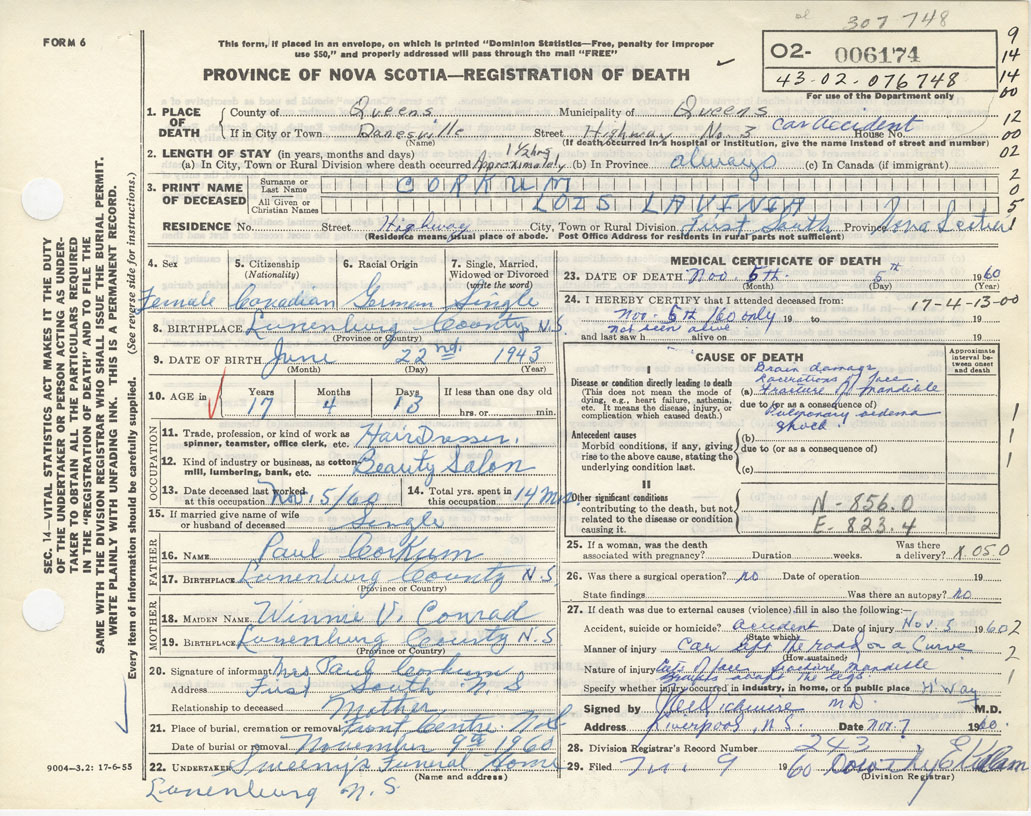 307 748
FORM 6
This form, if placed in an envelope, on which is printed "Dominion Statistics—Free, penalty for improper
use $50," and properly addressed will pass through the mail "FREE"
PROVINCE OF NOVA SCOTIA—REGISTRATION OF DEATH
02- 006174
43-02-076748
For use of the Department only
9
14
14
00
12
00
02
2
0
5
1
1. PLACE OF DEATH County of Queens Municipality of Queens
If in City or Town Danesville Street Highway No. 3 Car Accident House No.
(Name) (If death occurred in a hospital or institution, give the name instead of street and number)
2. LENGTH OF STAY (in years, months and days)
(a) In City, Town or Rural Division where death occurred Approximately 1½ hrs (b) In Province always (c) In Canada (if immigrant)
3. PRINT NAME OF DECEASED Surname or Last Name CORKUM
All Given or Christian Names LOIS LAVINIA
RESIDENCE No. Street Highway City, Town or Rural Division First South Province Nova Scotia
(Residence means usual place of abode. Post Office Address for residents in rural parts not sufficient)
4. Sex Female
5. Citizenship (Nationality) Canadian
6. Racial Origin German
7. Single, Married, Widowed or Divorced (write the word) Single
8. BIRTHPLACE Lunenburg County N.S.
(Province or Country)
9. DATE OF BIRTH June 22nd. 1943
(Month) (Day) (Year)
10. AGE in Years 17 Months 4 Days 13 If less than one day old
hrs. or min.
OCCUPATION
11. Trade, profession, or kind of work as spinner, teamster, office clerk, etc. HairDresser.
12. Kind of industry or business, as cotton-mill, lumbering, bank, etc. Beauty Salon
13. Date deceased last worked at this occupation Nov. 5/60 14. Total yrs. spent in this occupation 14 Mos
15. If married give name of wife or husband of deceased Single
FATHER
16. NAME Paul Corkum
17. BIRTHPLACE Lunenburg County N.S
(Province or Country)
MOTHER
18. MAIDEN NAME Winnie V. Conrad
19. BIRTHPLACE Lunenburg County N.S
(Province or Country)
20. Signature of informant Mrs Paul Corkum
Address First South N.S
Relationship to deceased Mother
21. Place of burial, cremation or removal Front Centre N.S
Date of burial or removal November 9th 1960
22. UNDERTAKER Sweeny's Funeral Home
(Name and address)
Lunenburg N.S.
MEDICAL CERTIFICATE OF DEATH
23. DATE OF DEATH Nov. 5th. 5th 1960
(Month) (Day) (Year)
24. I HEREBY CERTIFY that I attended deceased from: 17-4-13-00
Nov. 5th /60 only 19 to 19
and last saw h not seen alive alive on 19
CAUSE OF DEATH
Approximate interval between onset and death
I
Disease or condition directly leading to death
(This does not mean the mode of dying, e.g., heart failure, asthenia, etc. It means the disease, injury, or complication which caused death.)
Brain damage
Lacerations of face
(a) Fracture of Mandible
due to (or as a consequence of)
Pulmonary oedema
Shock
Antecedent causes
Morbid conditions, if any, giving rise to the above cause, stating the underlying condition last.
(b)
due to (or as a consequence of)
(c)
1
1
1
II
Other significant conditions
contributing to the death, but not related to the disease or condition causing it.
N-856.0
E-823.4
25. If a woman, was the death associated with pregnancy? Duration weeks. Was there a delivery? X050
26. Was there a surgical operation? no Date of operation 19
State findings Was there an autopsy? no
27. If death was due to external causes (violence) fill in also the following:—
Accident, suicide or homicide? accident Date of injury Nov. 5 1960 2
(State which)
Manner of injury Car left the road on a Curve 2
(How sustained)
Nature of injury Cuts of face fracture mandible
1
Specify whether injury occurred in industry, in home, or in public place H'Way
Signed by M.D. M.D.
Address Liverpool, N.S. Date Nov. 7 1960.
28. Division Registrar's Record Number 243
29. Filed 9 1960
(Division Registrar)
SEC. 14—VITAL STATISTICS ACT MAKES IT THE DUTY
OF THE UNDERTAKER OR PERSON ACTING AS UNDER-
TAKER TO OBTAIN ALL THE PARTICULARS REQUIRED
IN THE "REGISTRATION OF DEATH" AND TO FILE THE
SAME WITH THE DIVISION REGISTRAR WHO SHALL ISSUE THE BURIAL PERMIT.
WRITE PLAINLY WITH UNFADING INK. THIS IS A PERMANENT RECORD.
Every item of information should be carefully supplied. (See reverse side for instructions.)
9004-3.2: 17-6-55